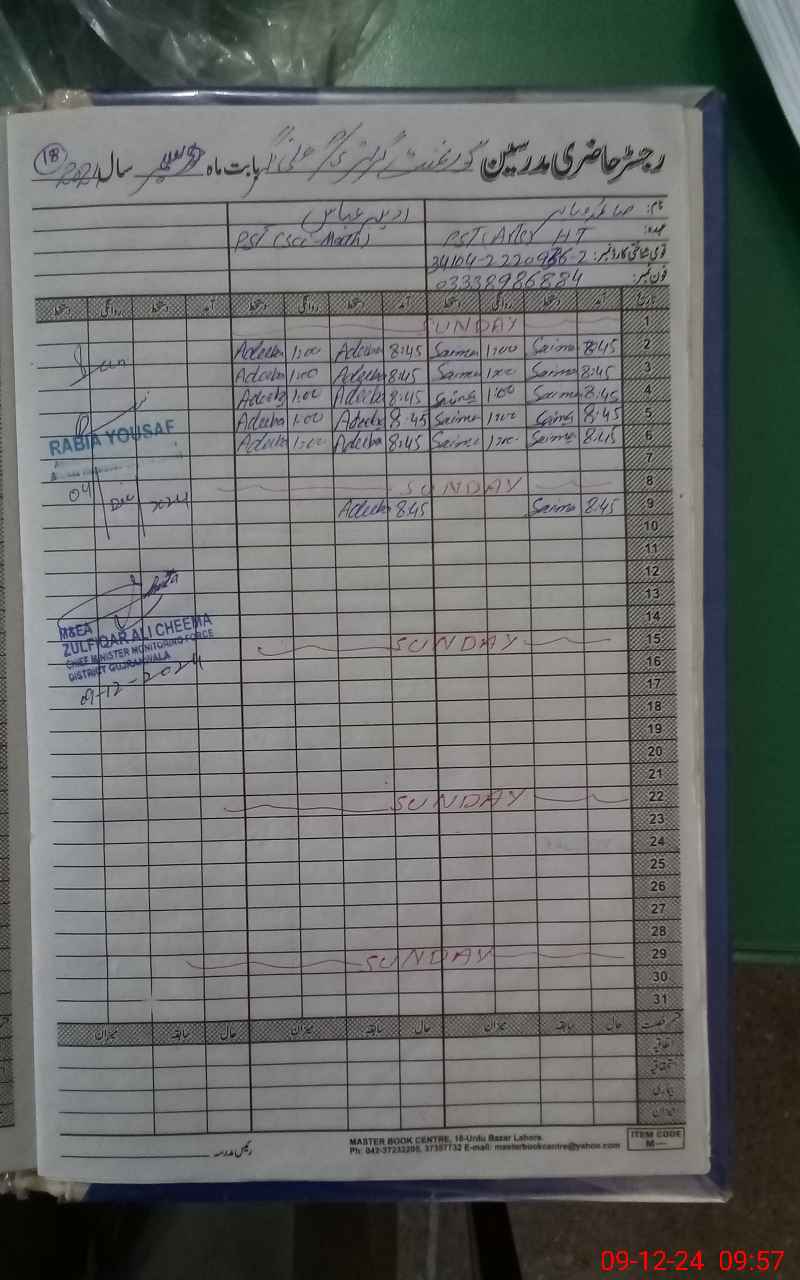 18
رجسٹر حاضری مدرسین گورنمنٹ بابت ماہ دسمبر سال 2024
نام:
عہدہ: PST (Arts) HT PST (Sci-Math)
قومی شناختی کارڈ نمبر:
فون نمبر: 03338986884
تاریخ آمد دستخط روانگی دستخط آمد دستخط روانگی دستخط آمد دستخط روانگی دستخط
1 SUNDAY
2 8:45 Saima 1:00 Saima 8:45 Adeeba 1:00 Adeeba
3 8:45 Saima 1:00 Saima 8:45 Adeeba 1:00 Adeeba
4 8:45 Saima 1:00 Saima 8:45 Adeeba 1:00 Adeeba
5 8:45 Saima 1:00 Saima 8:45 Adeeba 1:00 Adeeba
6 8:45 Saima 1:00 Saima 8:45 Adeeba 1:00 Adeeba
RABIA YOUSAF
7
8 SUNDAY
04 Dec 2024
9 8:45 Saima 8:45 Adeeba
10
11
12
13
14
M&EA
ZULFIQAR ALI CHEEMA
CHIEF MINISTER MONITORING FORCE
DISTRICT GUJRANWALA
09-12-2024
15 SUNDAY
16
17
18
19
20
21
22 SUNDAY
23
24
25
26
27
28
29 SUNDAY
30
31
قسم رخصت حال سابقہ میزان حال سابقہ میزان حال سابقہ میزان
اتفاقیہ
استحقاقیہ
بیماری
میزان
رئیس مدرسہ
MASTER BOOK CENTRE, 16-Urdu Bazar Lahore.
Ph: 042-37232205, 37357732 E-mail: masterbookcentre@yahoo.com
ITEM CODE
M—
09-12-24 09:57